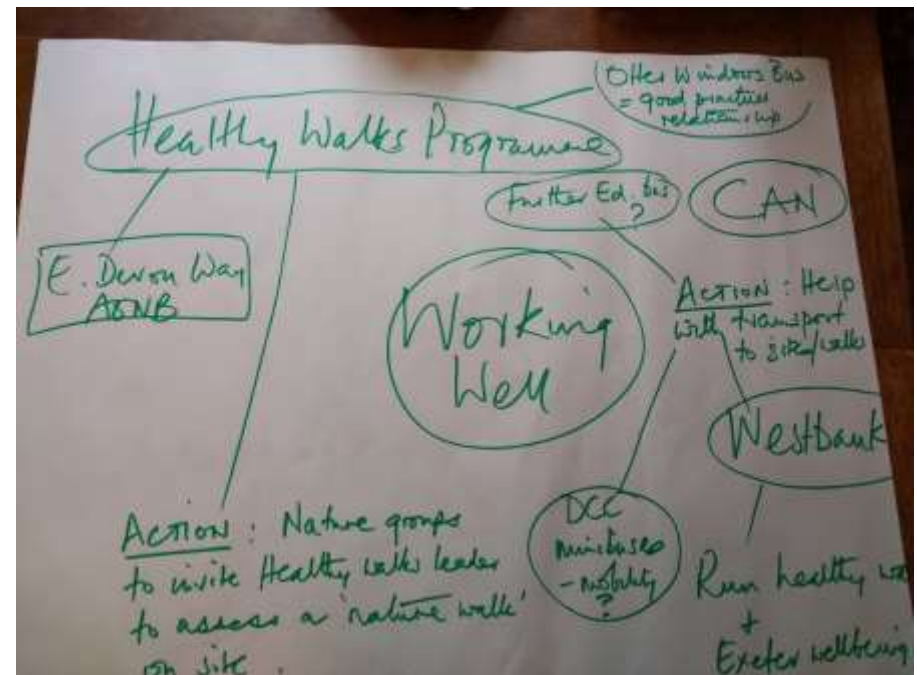 Otter Windows Bus
= good practice
relationship
Healthy Walks Programme
Further Ed. bus
?
CAN
E. Devon Way
AONB
Working
Well
ACTION : Help
with transport
to site/walks
Westbank
ACTION : Nature groups
to invite Healthy walks leader
to assess a 'nature walk'
on site.
DCC
minibuses
- mobility
?
Run healthy
+
Exeter wellbeing